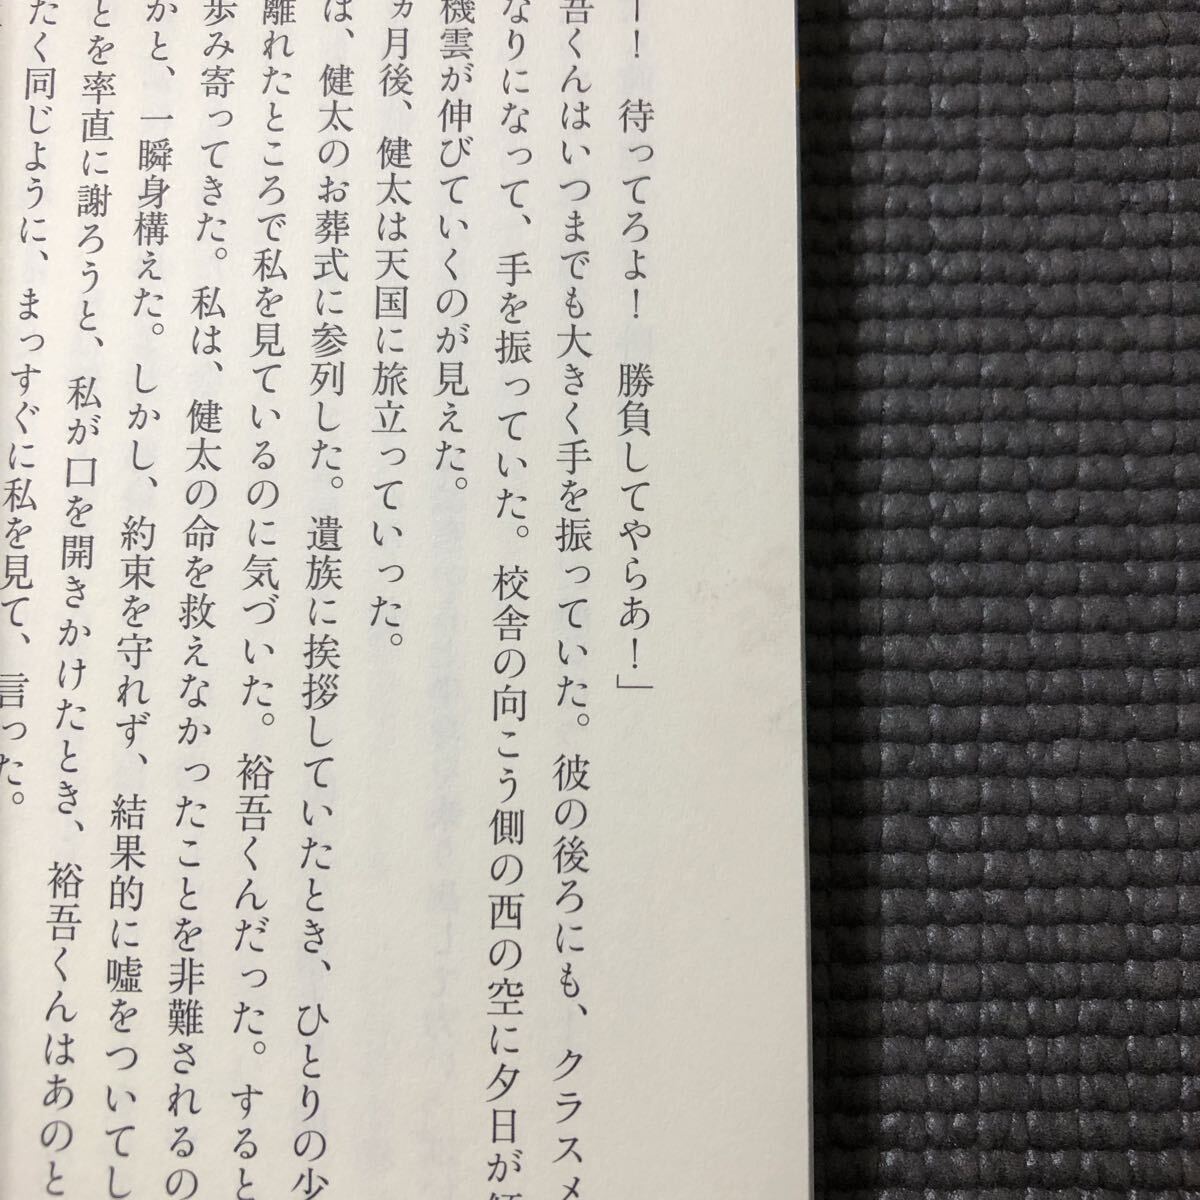 ー！　待ってろよ！　勝負してやらあ！」
吾くんはいつまでも大きく手を振っていた。彼の後ろにも、クラスメ
なりになって、手を振っていた。校舎の向こう側の西の空に夕日が
機雲が伸びていくのが見えた。
ヵ月後、健太は天国に旅立っていった。
は、健太のお葬式に参列した。遺族に挨拶していたとき、ひとりの少
離れたところで私を見ているのに気づいた。裕吾くんだった。すると
歩み寄ってきた。私は、健太の命を救えなかったことを非難されるの
かと、一瞬身構えた。しかし、約束を守れず、結果的に嘘をついてし
とを率直に謝ろうと、私が口を開きかけたとき、裕吾くんはあのと
たく同じように、まっすぐに私を見て、言った。